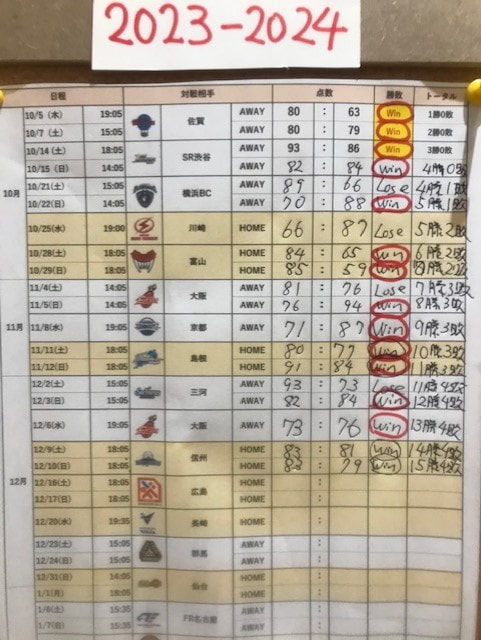 2023-2024
日程 対戦相手 点数 勝敗 トータル
10月
10/5 (木) 19:05 佐賀 AWAY 80 : 63 Win 1勝0敗
10/7 (土) 15:05 AWAY 80 : 79 Win 2勝0敗
10/14 (土) 18:05 SR渋谷 AWAY 93 : 86 Win 3勝0敗
10/15 (日) 14:05 AWAY 82 : 84 Win 4勝0敗
10/21(土) 15:05 横浜BC AWAY 89 : 66 Lose 4勝1敗
10/22(日) 14:05 AWAY 70 : 88 Win 5勝1敗
10/25(水) 19:00 川崎 HOME 66 : 87 Lose 5勝2敗
10/28(土) 18:05 富山 HOME 84 : 65 Win 6勝2敗
10/29(日) 18:05 HOME 85 : 59 Win 勝2敗
11月
11/4(土) 14:05 大阪 AWAY 81 : 76 Lose 7勝3敗
11/5(日) 14:05 AWAY 76 : 94 Win 8勝3敗
11/8(水) 19:05 京都 AWAY 71 : 87 Win 9勝3敗
11/11(土) 18:05 島根 HOME 80 : 77 Win 10勝3敗
11/12(日) 18:05 HOME 91 : 84 Win 11勝3敗
12月
12/2(土) 15:05 三河 AWAY 93 : 73 Lose 11勝4敗
12/3(日) 15:05 AWAY 82 : 84 Win 12勝4敗
12/6(水) 19:05 大阪 AWAY 73 : 76 Win 13勝4敗
12/9(土) 18:05 信州 HOME 83 : 81 Win 14勝4敗
12/10(日) 18:05 HOME 83 : 79 Win 15勝4敗
12/16(土) 18:05 広島 HOME :
12/17(日) 18:05 HOME :
12/20(水) 19:35 長崎 HOME :
12/23(土) 15:05 群馬 AWAY :
12/24(日) 15:05 AWAY :
12/31(日) 14:05 仙台 HOME :
1/1(月) 18:05 HOME :
1/6(土) 15:35 FE名古屋 AWAY :
1/7(日) 15:05 AWAY :